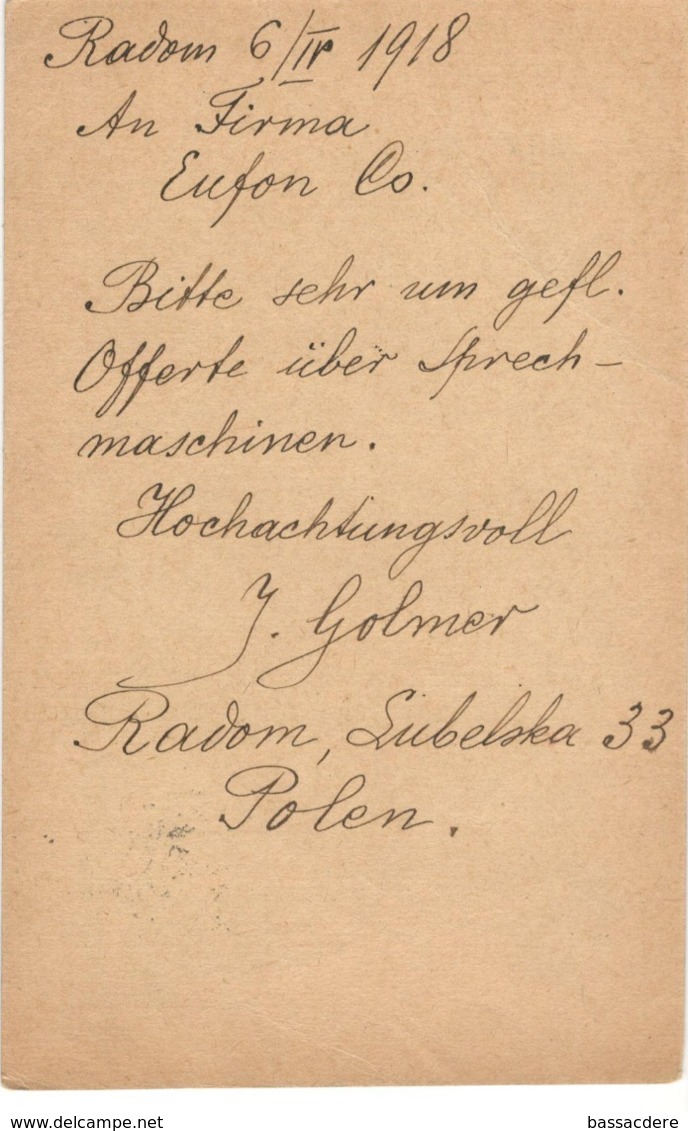 Radom 6/IV 1918
An Firma
Eufon Co.
Bitte sehr um gefl.
Offerte über Sprech-
maschinen.
Hochachtungsvoll
J. Golmer
Radom, Lubelska 33
Polen.
www.delcampe.net
bassacdere